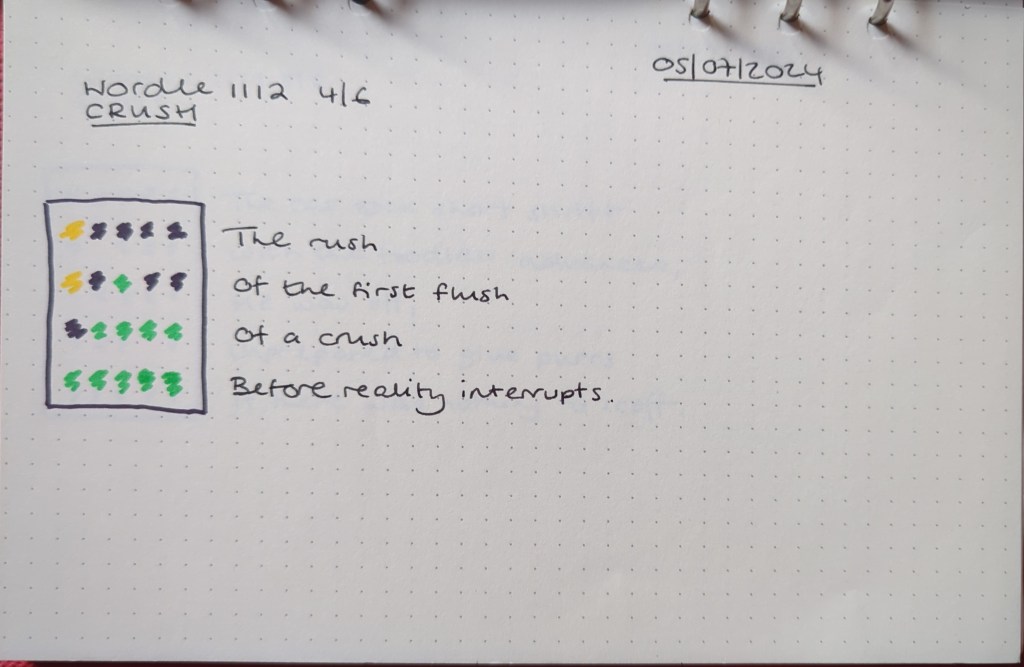 05/07/2024
Wordle 1112 4/6
CRUSH
The rush
Of the first flush
Of a crush
Before reality interrupts.